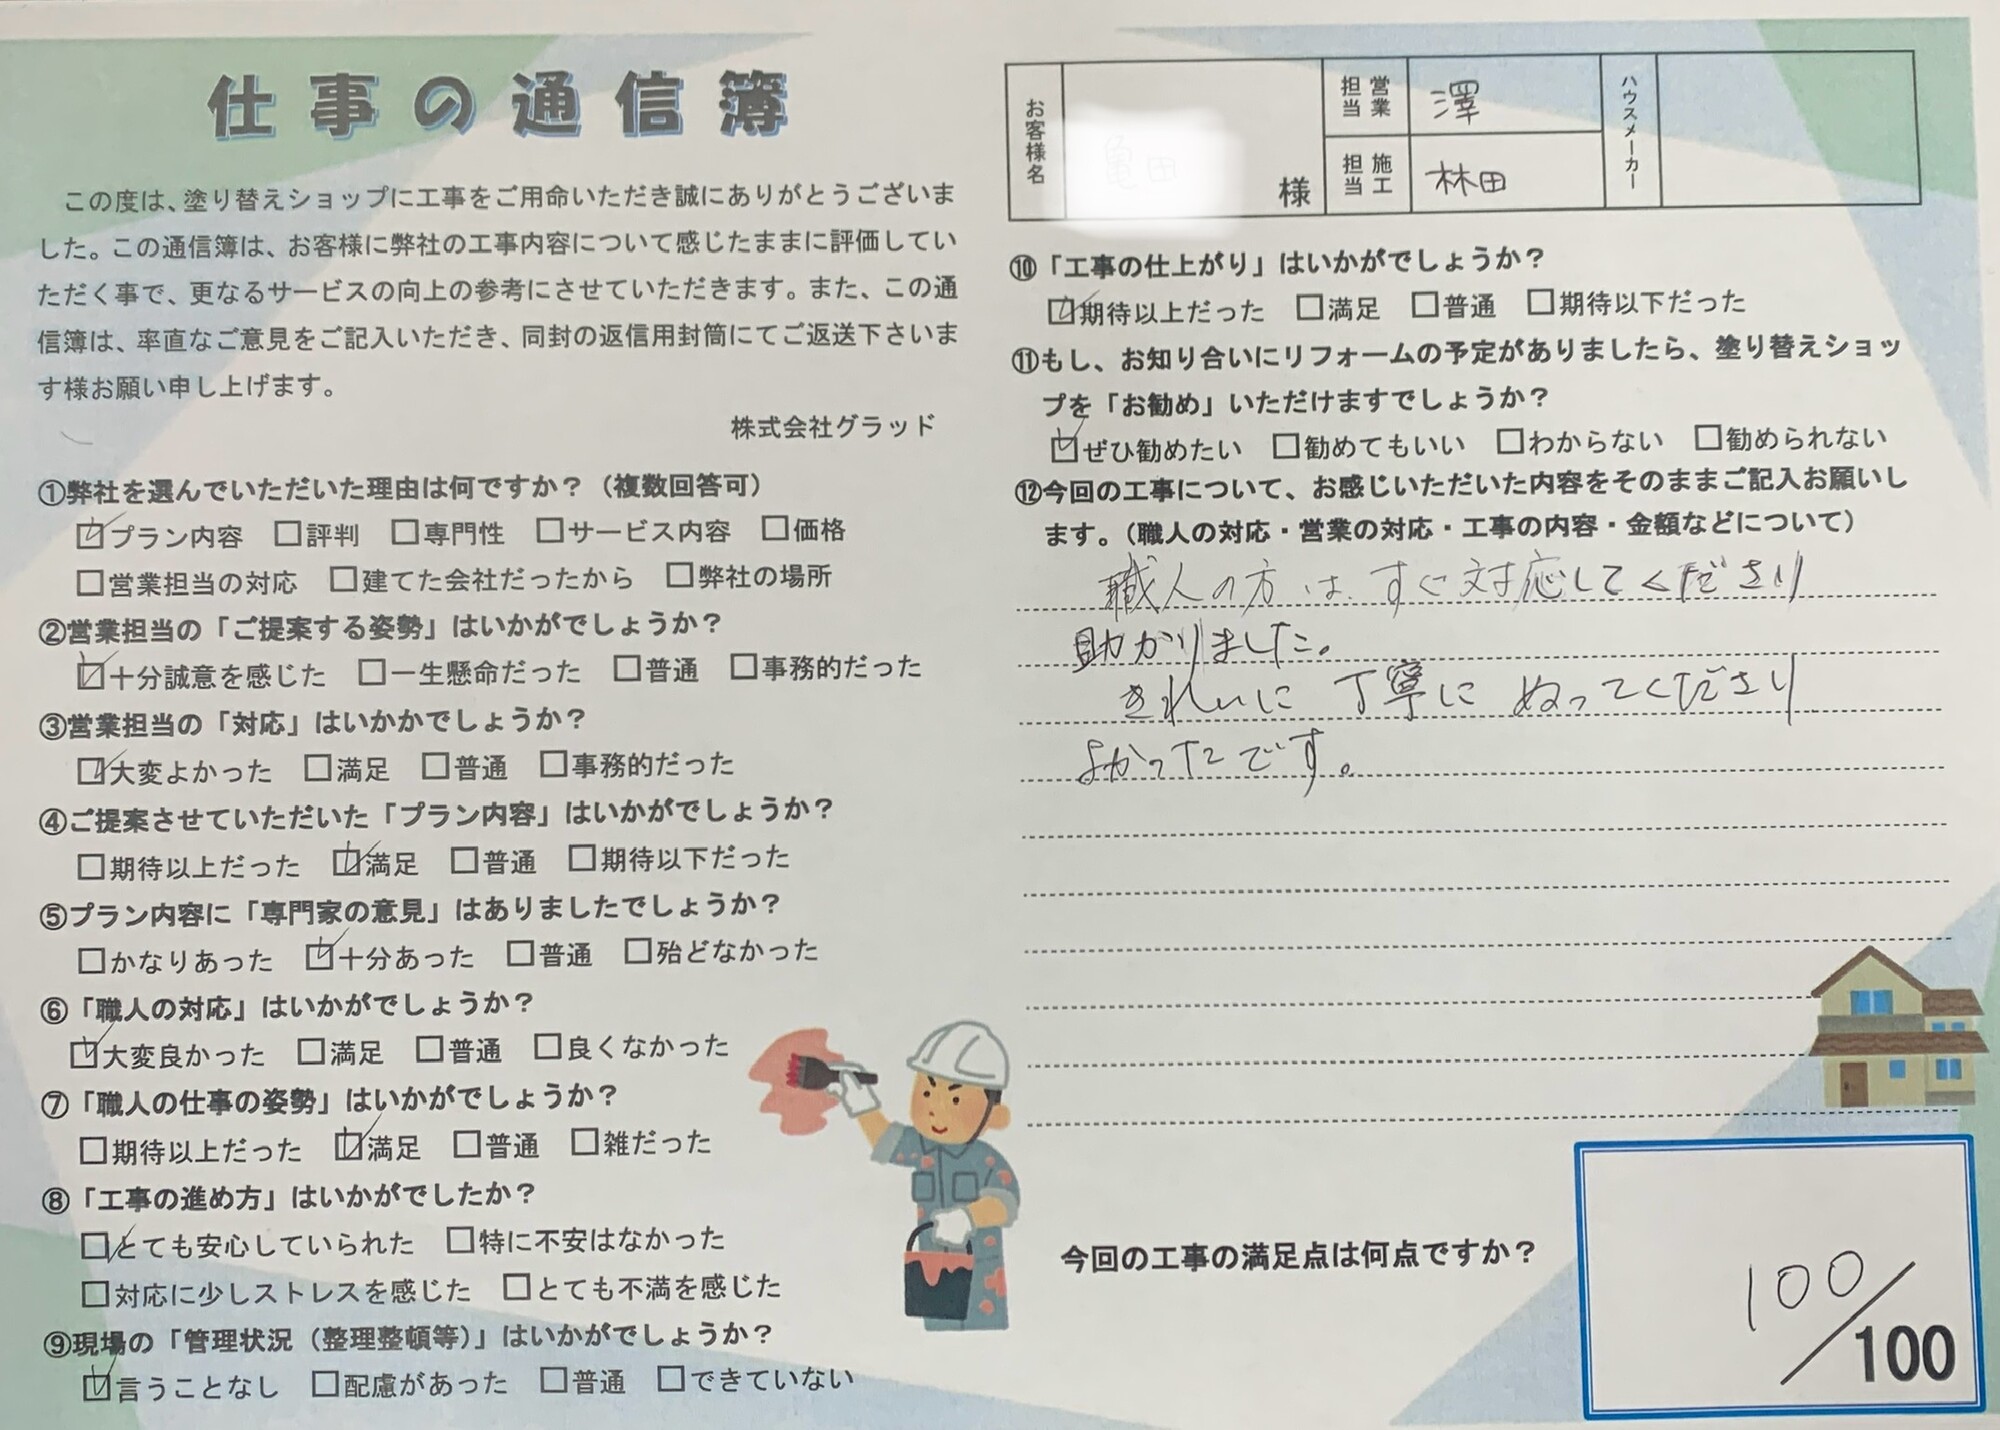 仕事の通信簿
この度は、塗り替えショップに工事をご用命いただき誠にありがとうございま
した。この通信簿は、お客様に弊社の工事内容について感じたままに評価してい
ただく事で、更なるサービスの向上の参考にさせていただきます。また、この通
信簿は、率直なご意見をご記入いただき、同封の返信用封筒にてご返送下さいま
す様お願い申し上げます。
株式会社グラッド
①弊社を選んでいただいた理由は何ですか?（複数回答可）
☑プラン内容 □評判 □専門性 □サービス内容 □価格
□営業担当の対応 □建てた会社だったから □弊社の場所
②営業担当の「ご提案する姿勢」はいかがでしょうか?
☑十分誠意を感じた □一生懸命だった □普通 □事務的だった
③営業担当の「対応」はいかかでしょうか?
☑大変よかった □満足 □普通 □事務的だった
④ご提案させていただいた「プラン内容」はいかがでしょうか?
□期待以上だった ☑満足 □普通 □期待以下だった
⑤プラン内容に「専門家の意見」はありましたでしょうか?
□かなりあった ☑十分あった □普通 □殆どなかった
⑥「職人の対応」はいかがでしょうか?
☑大変良かった □満足 □普通 □良くなかった
⑦「職人の仕事の姿勢」はいかがでしょうか?
□期待以上だった ☑満足 □普通 □雑だった
⑧「工事の進め方」はいかがでしたか?
☑とても安心していられた □特に不安はなかった
□対応に少しストレスを感じた □とても不満を感じた
⑨現場の「管理状況（整理整頓等）」はいかがでしょうか?
☑言うことなし □配慮があった □普通 □できていない
お客様名 様 営業担当 澤 ハウスメーカー
施工担当 林田
⑩「工事の仕上がり」はいかがでしょうか?
☑期待以上だった □満足 □普通 □期待以下だった
⑪もし、お知り合いにリフォームの予定がありましたら、塗り替えショッ
プを「お勧め」いただけますでしょうか?
☑ぜひ勧めたい □勧めてもいい □わからない □勧められない
⑫今回の工事について、お感じいただいた内容をそのままご記入お願いし
ます。（職人の対応・営業の対応・工事の内容・金額などについて）
職人の方は、すぐ対応してくださり
助かりました。
きれいに丁寧にぬってくださり
よかったです。
今回の工事の満足点は何点ですか?
100/100